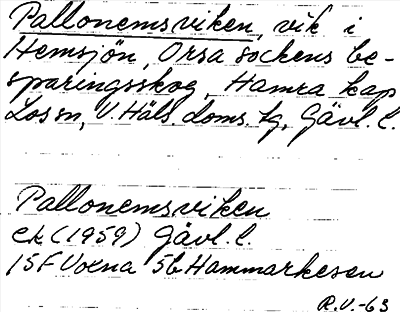 Pallonemsviken, vik i
Hemsjön, Orsa sockens be-
sparingsskog, Hamra kap
Lossn, V. Häls. doms. tg, Gävl. l.
Pallonemsviken
ek (1959) Gävl. l.
15F Voxna 5b Hammarkesen
R.V.-63